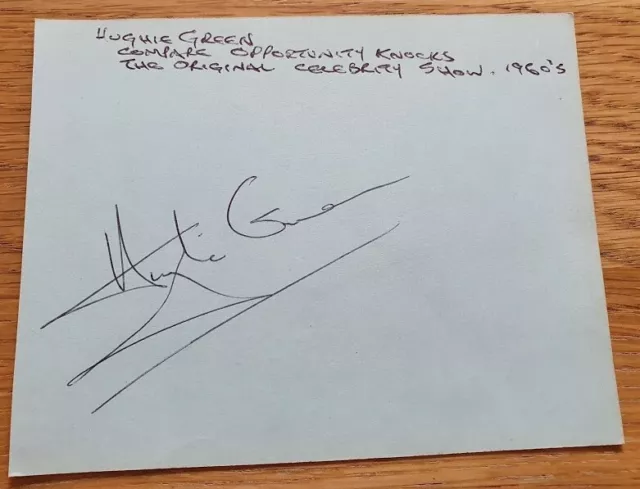 HUGHIE GREEN
COMPARE OPPORTUNITY KNOCKS
THE ORIGINAL CELEBRITY SHOW. 1960'S
Hughie Green